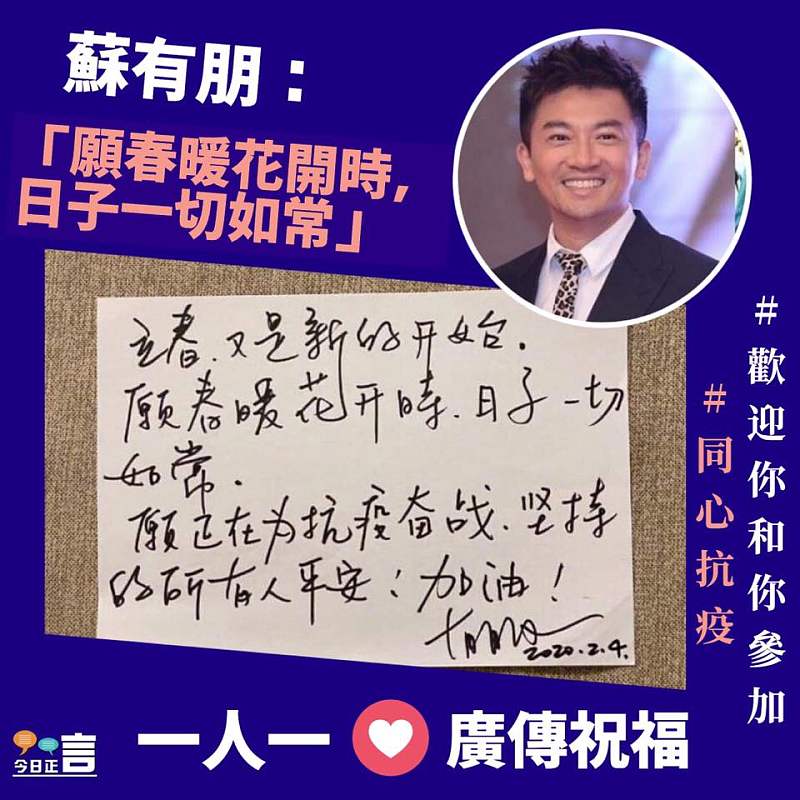 蘇有朋：
「願春暖花開時,
日子一切如常」
立春、又是新的开始。
願春暖花开時、日子一切
如常。
願正在为抗疫奋战、坚持
的所有人平安！加油！
2020.2.4.
#歡迎你和你參加
#同心抗疫
一人一
廣傳祝福
今日正言